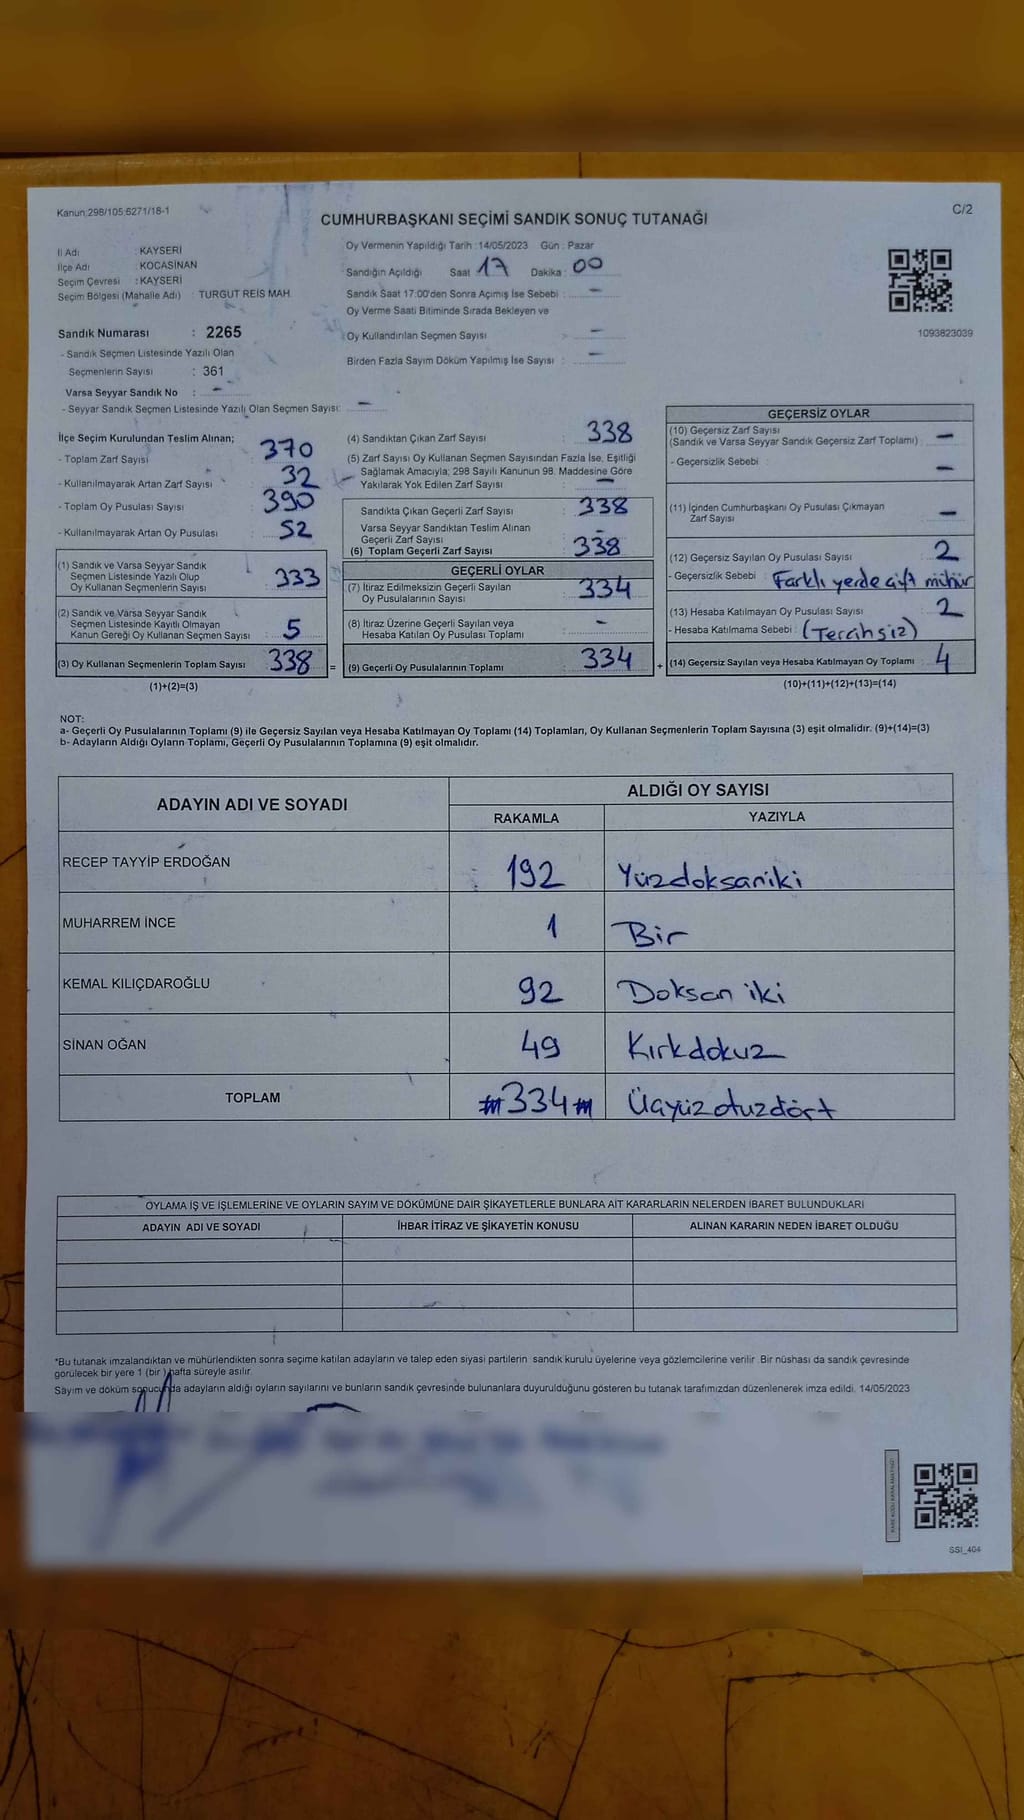 Kanun:298/105 6271/18-1
C/2
CUMHURBAŞKANI SEÇİMİ SANDIK SONUÇ TUTANAĞI
İl Adı : KAYSERİ
İlçe Adı : KOCASİNAN
Seçim Çevresi : KAYSERİ
Seçim Bölgesi (Mahalle Adı) : TURGUT REİS MAH.
Sandık Numarası : 2265
- Sandık Seçmen Listesinde Yazılı Olan
Seçmenlerin Sayısı : 361
Varsa Seyyar Sandık No : -
- Seyyar Sandık Seçmen Listesinde Yazılı Olan Seçmen Sayısı: -
Oy Vermenin Yapıldığı Tarih :14/05/2023 Gün : Pazar
Sandığın Açıldığı Saat 17 Dakika : 00
Sandık Saat 17:00'den Sonra Açımış İse Sebebi : -
Oy Verme Saati Bitiminde Sırada Bekleyen ve
Oy Kullandırılan Seçmen Sayısı : -
Birden Fazla Sayım Döküm Yapılmış İse Sayısı : -
1093823039
İlçe Seçim Kurulundan Teslim Alınan;
- Toplam Zarf Sayısı : 370
- Kullanılmayarak Artan Zarf Sayısı : 32
- Toplam Oy Pusulası Sayısı : 390
- Kullanılmayarak Artan Oy Pusulası : 52
(1) Sandık ve Varsa Seyyar Sandık
Seçmen Listesinde Yazılı Olup
Oy Kullanan Seçmenlerin Sayısı : 333
(2) Sandık ve Varsa Seyyar Sandık
Seçmen Listesinde Kayıtlı Olmayan
Kanun Gereği Oy Kullanan Seçmen Sayısı : 5
(3) Oy Kullanan Seçmenlerin Toplam Sayısı : 338 =
(1)+(2)=(3)
(4) Sandıktan Çıkan Zarf Sayısı : 338
(5) Zarf Sayısı Oy Kullanan Seçmen Sayısından Fazla İse, Eşitliği
Sağlamak Amacıyla; 298 Sayılı Kanunun 98. Maddesine Göre
Yakılarak Yok Edilen Zarf Sayısı : -
Sandıkta Çıkan Geçerli Zarf Sayısı : 338
Varsa Seyyar Sandıktan Teslim Alınan
Geçerli Zarf Sayısı : -
(6) Toplam Geçerli Zarf Sayısı : 338
GEÇERLİ OYLAR
(7) İtiraz Edilmeksizin Geçerli Sayılan
Oy Pusulalarının Sayısı : 334
(8) İtiraz Üzerine Geçerli Sayılan veya
Hesaba Katılan Oy Pusulası Toplamı : -
(9) Geçerli Oy Pusulalarının Toplamı : 334 +
GEÇERSİZ OYLAR
(10) Geçersiz Zarf Sayısı
(Sandık ve Varsa Seyyar Sandık Geçersiz Zarf Toplamı) : -
- Geçersizlik Sebebi : -
(11) İçinden Cumhurbaşkanı Oy Pusulası Çıkmayan
Zarf Sayısı : -
(12) Geçersiz Sayılan Oy Pusulası Sayısı : 2
- Geçersizlik Sebebi : Farklı yerde çift mühür
(13) Hesaba Katılmayan Oy Pusulası Sayısı : 2
- Hesaba Katılmama Sebebi : (Tercihsiz)
(14) Geçersiz Sayılan veya Hesaba Katılmayan Oy Toplamı : 4
(10)+(11)+(12)+(13)=(14)
NOT:
a- Geçerli Oy Pusulalarının Toplamı (9) ile Geçersiz Sayılan veya Hesaba Katılmayan Oy Toplamı (14) Toplamları, Oy Kullanan Seçmenlerin Toplam Sayısına (3) eşit olmalıdır. (9)+(14)=(3)
b- Adayların Aldığı Oyların Toplamı, Geçerli Oy Pusulalarının Toplamına (9) eşit olmalıdır.
ADAYIN ADI VE SOYADI ALDIĞI OY SAYISI
RAKAMLA YAZIYLA
RECEP TAYYİP ERDOĞAN 192 Yüzdoksaniki
MUHARREM İNCE 1 Bir
KEMAL KILIÇDAROĞLU 92 Doksan iki
SİNAN OĞAN 49 Kırkdokuz
TOPLAM 334 Üçyüzotuzdört
OYLAMA İŞ VE İŞLEMLERİNE VE OYLARIN SAYIM VE DÖKÜMÜNE DAİR ŞİKAYETLERLE BUNLARA AİT KARARLARIN NELERDEN İBARET BULUNDUKLARI
ADAYIN ADI VE SOYADI İHBAR İTİRAZ VE ŞİKAYETİN KONUSU ALINAN KARARIN NEDEN İBARET OLDUĞU
*Bu tutanak imzalandıktan ve mühürlendikten sonra seçime katılan adayların ve talep eden siyasi partilerin sandık kurulu üyelerine veya gözlemcilerine verilir. Bir nüshası da sandık çevresinde
görülecek bir yere 1 (bir ) hafta süreyle asılır.
Sayım ve döküm sonucunda adayların aldığı oyların sayılarını ve bunların sandık çevresinde bulunanlara duyurulduğunu gösteren bu tutanak tarafımızdan düzenlenerek imza edildi. 14/05/2023
SSI_404